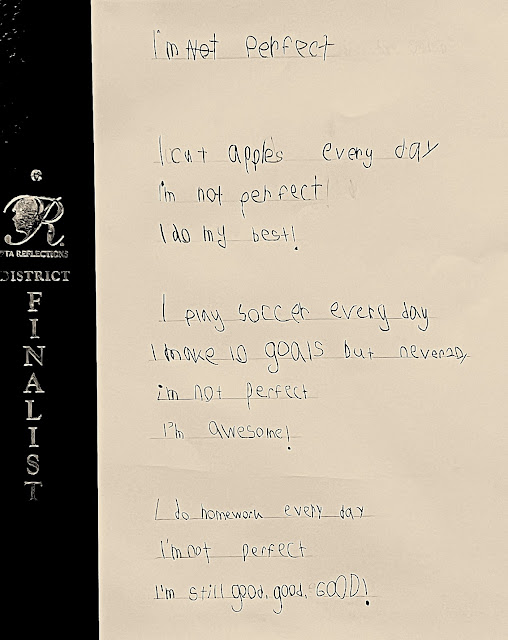 I'm Not Perfect
I cut apples every day
I'm not perfect!
I do my best!
I play soccer every day
I make 10 goals but never 20,
i'm not perfect
I'm awesome!
I do homework every day
I'm not perfect
I'm still good, good, GOOD!
R.
PTA REFLECTIONS
DISTRICT
FINALIST